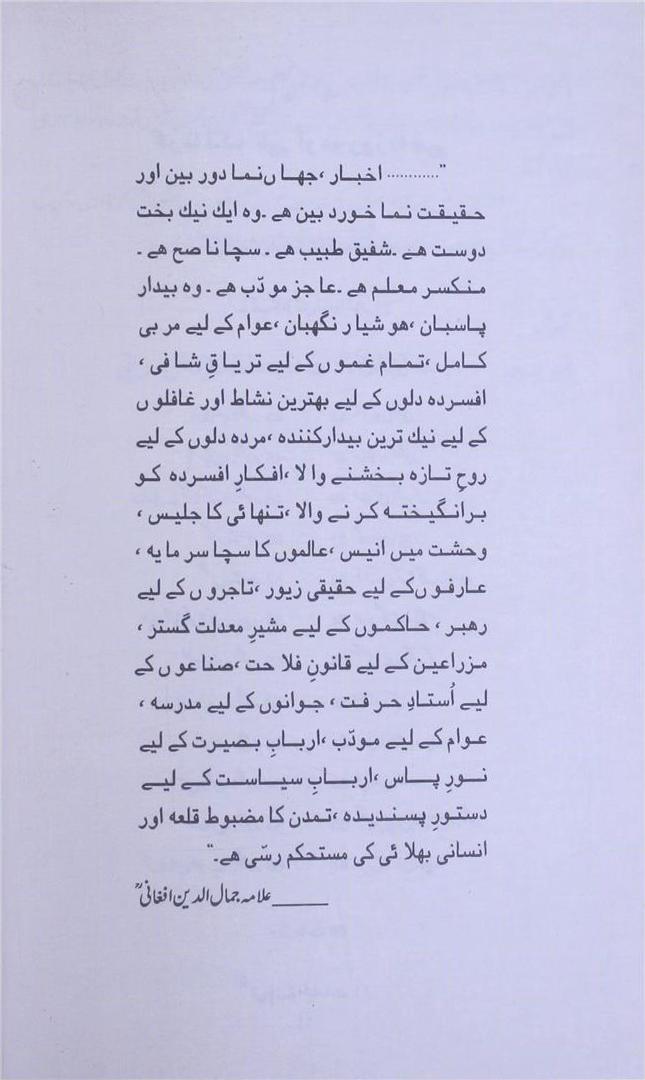 "............ اخبار ،جہاں نما دور بین اور
حقیقت نما خورد بین ہے ۔وہ ایک نیک بخت
دوست ہے ۔شفیق طبیب ہے ۔ سچا ناصح ہے ۔
منکسر معلم ہے ۔عاجز مودّب ہے ۔ وہ بیدار
پاسبان ،ہوشیار نگہبان ،عوام کے لیے مربی
کامل ،تمام غموں کے لیے تریاقِ شافی ،
افسردہ دلوں کے لیے بہترین نشاط اور غافلوں
کے لیے نیک ترین بیدارکنندہ ،مردہ دلوں کے لیے
روحِ تازہ بخشنے والا ،افکارِ افسردہ کو
برانگیختہ کرنے والا ،تنہائی کا جلیس ،
وحشت میں انیس ،عالموں کا سچا سرمایہ ،
عارفوں کے لیے حقیقی زیور ،تاجروں کے لیے
رہبر ، حاکموں کے لیے مشیرِ معدلت گستر ،
مزراعین کے لیے قانونِ فلاحت ،صناعوں کے
لیے اُستادِ حرفت ، جوانوں کے لیے مدرسہ ،
عوام کے لیے مودّب ،اربابِ بصیرت کے لیے
نورِ پاس ،اربابِ سیاست کے لیے
دستورِ پسندیدہ ،تمدن کا مضبوط قلعہ اور
انسانی بھلائی کی مستحکم رسّی ہے۔"
______ علامہ جمال الدین افغانیؒ